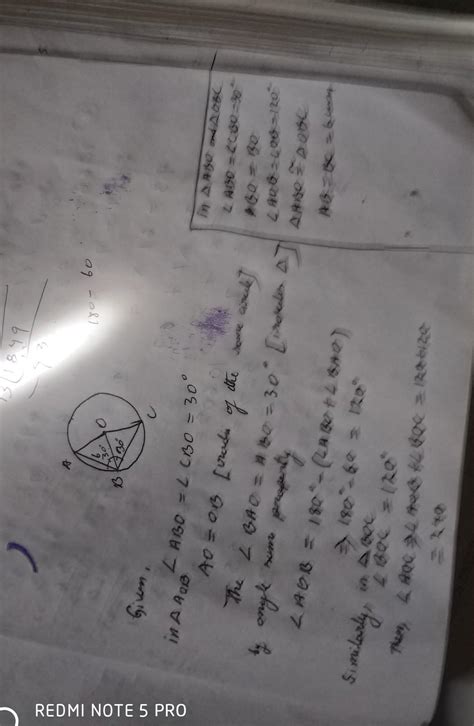 180 - 60
A
O
6
30°
30°
B
C
Given,
in △AOB ∠ABO = ∠CBO = 30°
AO = OB [radius of the same circle]
The ∠BAO = ABO = 30° [isosceles △]
by angle sum property
∠AOB = 180° - (∠ABO + ∠BAO)
⇒ 180° - 60 = 120°
Similarly, in △BOC
∠BOC = 120°
Then, ∠AOC ⇒ ∠AOB + ∠BOC = 120 + 120
= 240
in △ABO and △OBC
∠ABO = ∠CBO = 30°
ABO = BO
∠AOB = ∠COB = 120°
△ABO ≅ △OBC
AB = BC = 6cm
REDMI NOTE 5 PRO